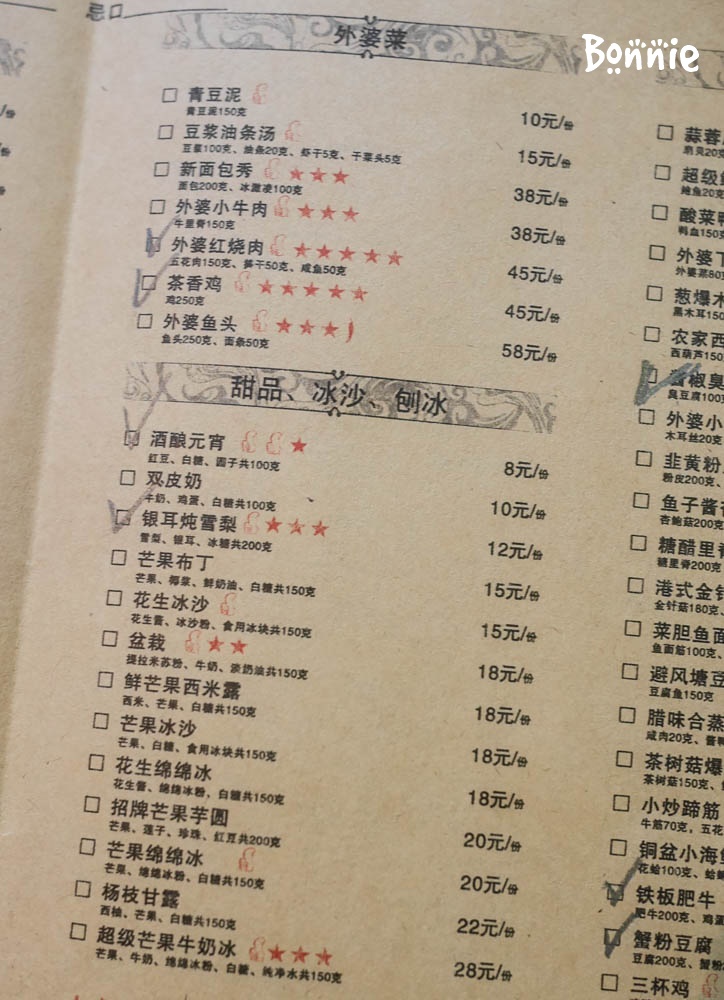 忌口
外婆菜
Bonnie
青豆泥
青豆泥150克
10元/份
豆浆油条汤
豆浆100克、油条20克、虾干5克、干菜头5克
15元/份
新面包秀
面包200克、冰激凌100克
38元/份
外婆小牛肉
牛里脊150克
38元/份
外婆红烧肉
五花肉150克、笋干50克、咸鱼50克
45元/份
茶香鸡
鸡250克
45元/份
外婆鱼头
鱼头250克、面条50克
58元/份
甜品、冰沙、刨冰
酒酿元宵
红豆、白糖、圆子共100克
8元/份
双皮奶
牛奶、鸡蛋、白糖共100克
10元/份
银耳炖雪梨
雪梨、银耳、冰糖共200克
12元/份
芒果布丁
芒果、椰浆、鲜奶油、白糖共150克
15元/份
花生冰沙
花生酱、冰沙粉、食用冰块共150克
15元/份
盆栽
提拉米苏粉、牛奶、淡奶油共150克
18元/份
鲜芒果西米露
西米、芒果、白糖共150克
18元/份
芒果冰沙
芒果、白糖、食用冰块共150克
18元/份
花生绵绵冰
花生酱、绵绵冰粉、白糖共150克
18元/份
招牌芒果芋圆
芒果、莲子、珍珠、红豆共200克
20元/份
芒果绵绵冰
芒果、绵绵冰粉、白糖共150克
20元/份
杨枝甘露
西柚、芒果、白糖共150克
22元/份
超级芒果牛奶冰
芒果、牛奶、绵绵冰粉、白糖、纯净水共150克
28元/份
蒜蓉
扇贝20克
超级
鲍鱼20克
酸菜鸭
鸭血150克
外婆
外婆菜80
葱爆木
黑木耳150
农家西
西葫芦150
椒臭
臭豆腐100克
外婆小
木耳丝20克
韭黄粉
粉皮200克、
鱼子酱
杏鲍菇200克
糖醋里脊
糖里脊200克
港式金针
金针菇180克、
菜胆鱼面
鱼面筋100克、
避风塘豆
豆腐鱼150克
腊味合蒸
咸肉20克、酱鸭
茶树菇爆
茶树菇150克、
小炒蹄筋
牛筋70克，五花
铜盆小海
花蛤100克、蛤
铁板肥牛
肥牛200克、鸡蛋
蟹粉豆腐
豆腐200克、蟹粉
三杯鸡